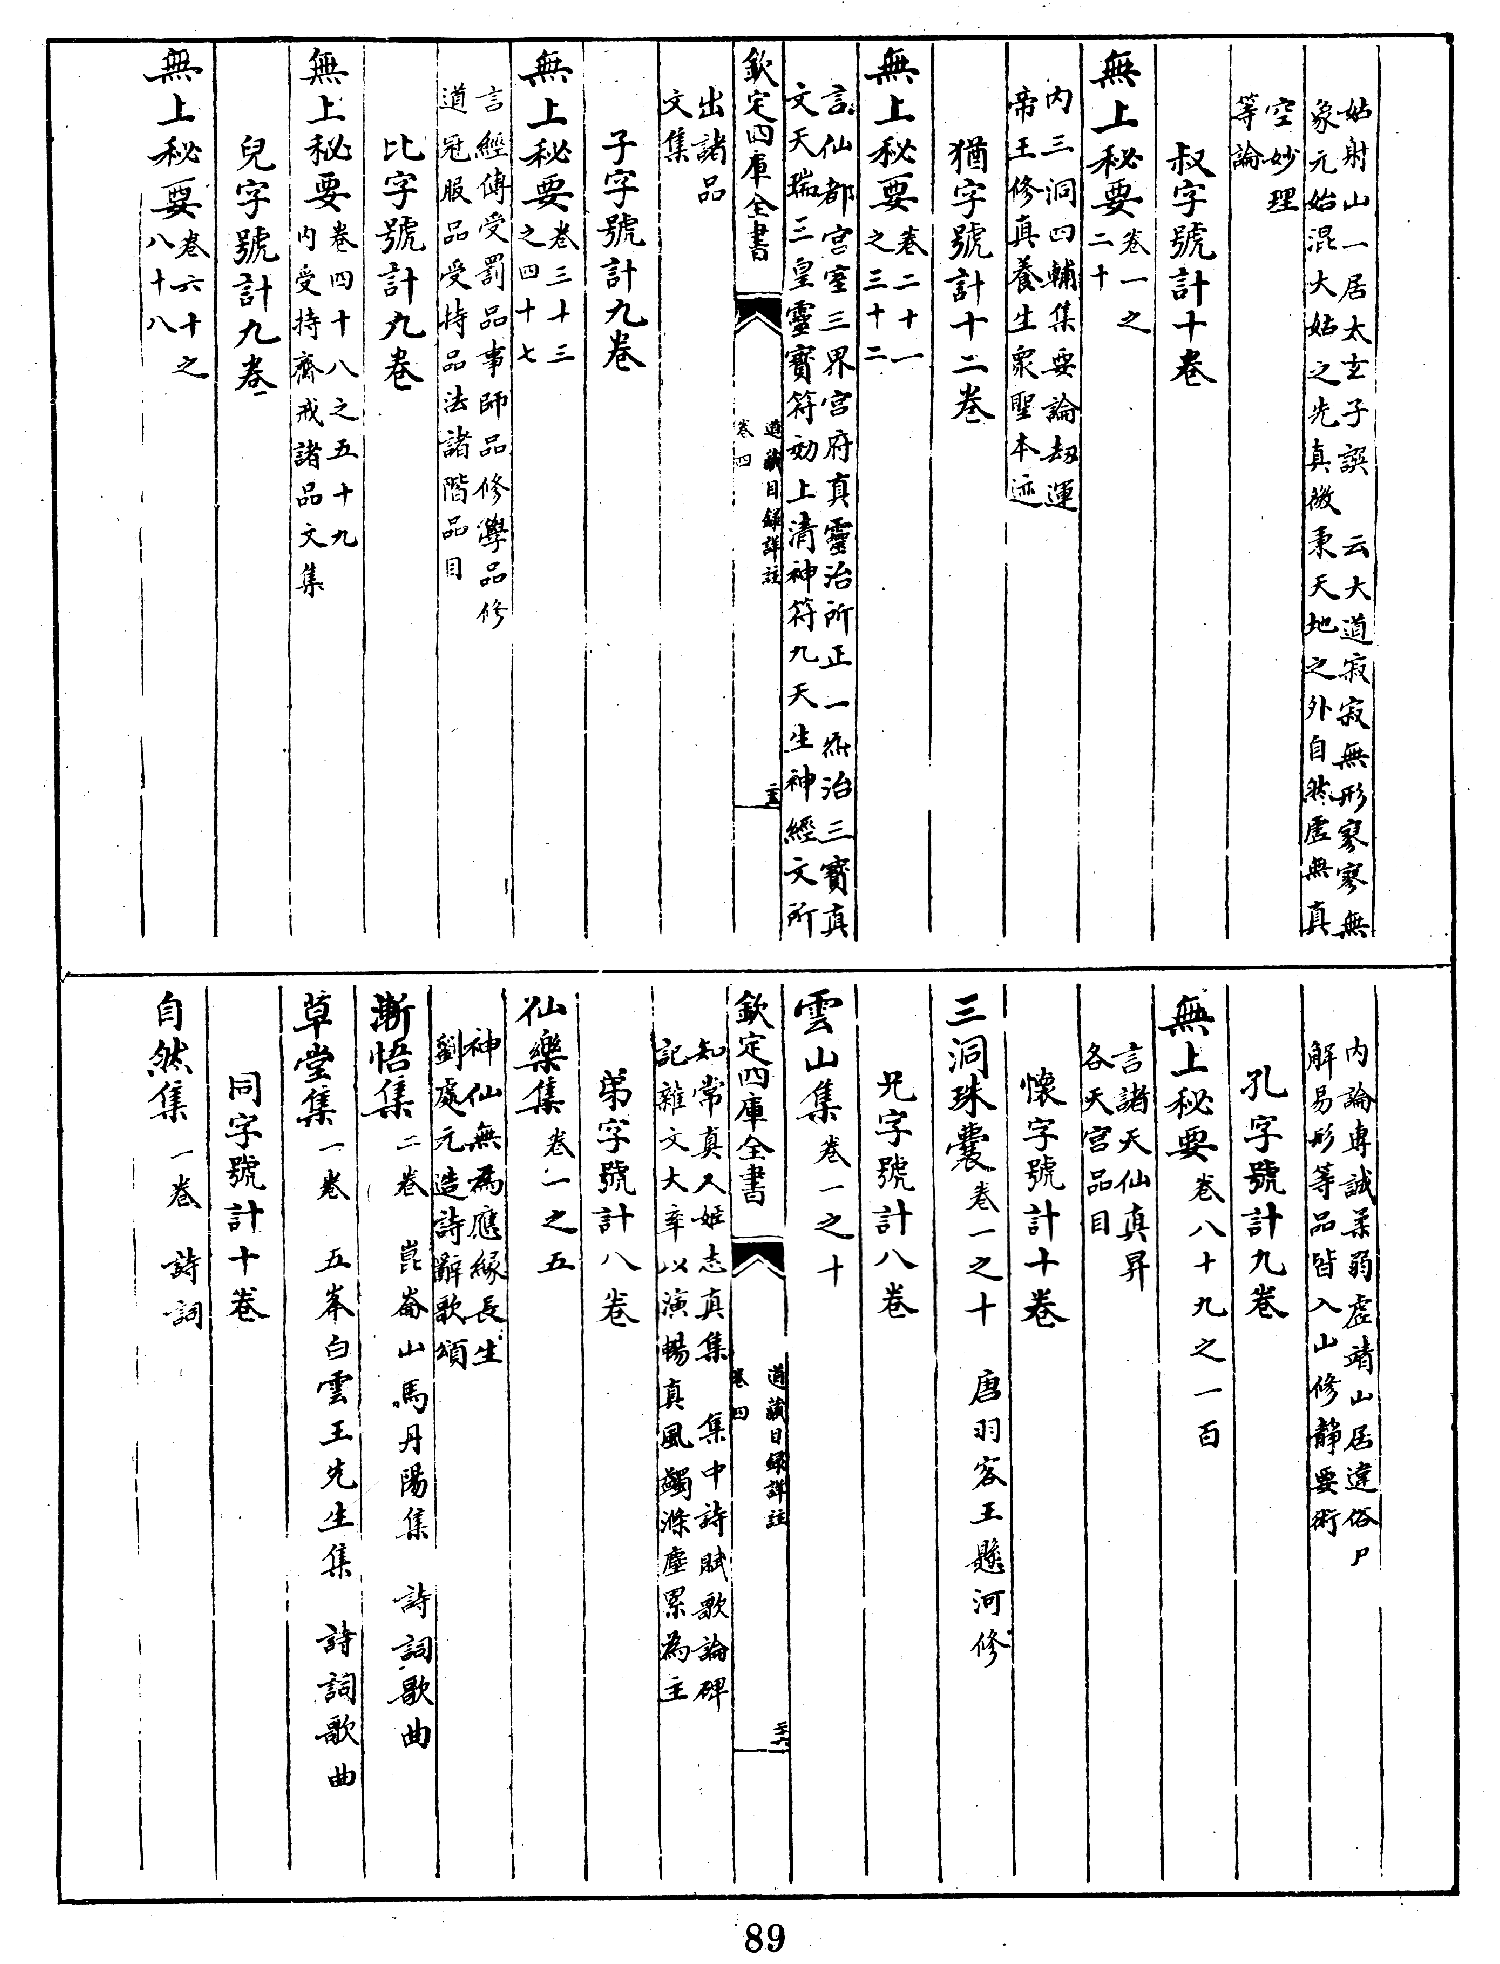 姑射山一居太玄子譔　云大道寂寂無形寥寥無
象元始混大始之先真徵秉天地之外自然虛無真
空妙理
等論
叔字號計十卷
無上秘要卷一之二十
内三洞四輔集要論劫運
帝王修真養生衆聖本迹
猶字號計十二卷
無上秘要卷二十一之三十二
言仙都宮室三界宮府真靈治所正一炁治三寶真
文天瑞三皇靈寶符効上清神符九天生神經文所
欽定四庫全書
道藏目録詳註
卷四
出諸品
文集
子字號計九卷
無上秘要卷三十三之四十七
言經傳受罰品事師品修學品修
道冠服品受持品法諸階品目
比字號計九卷
無上秘要卷四十八之五十九
内受持齋戒諸品文集
兒字號計九卷
無上秘要卷六十之八十八
内論專誠柔弱虚靖山居違俗尸
解易形等品皆入山修靜要術
孔字號計九卷
無上秘要卷八十九之一百
言諸天仙真昇
各天宮品目
懷字號計十卷
三洞珠囊卷一之十　唐羽客王懸河修
兄字號計八卷
雲山集卷一之十
欽定四庫全書
道藏目録詳註
卷四
二十六
知常真人姬志真集　集中詩賦歌論碑
記雜文大率以演暢真風蠲滌塵累為主
弟字號計八卷
仙樂集卷一之五
神仙無為應緣長生
劉處元造詩辭歌頌
漸悟集二卷　崑崙山馬丹陽集　詩詞歌曲
草堂集一卷　五峯白雲王先生集　詩詞歌曲
同字號計十卷
自然集一卷　詩詞
89